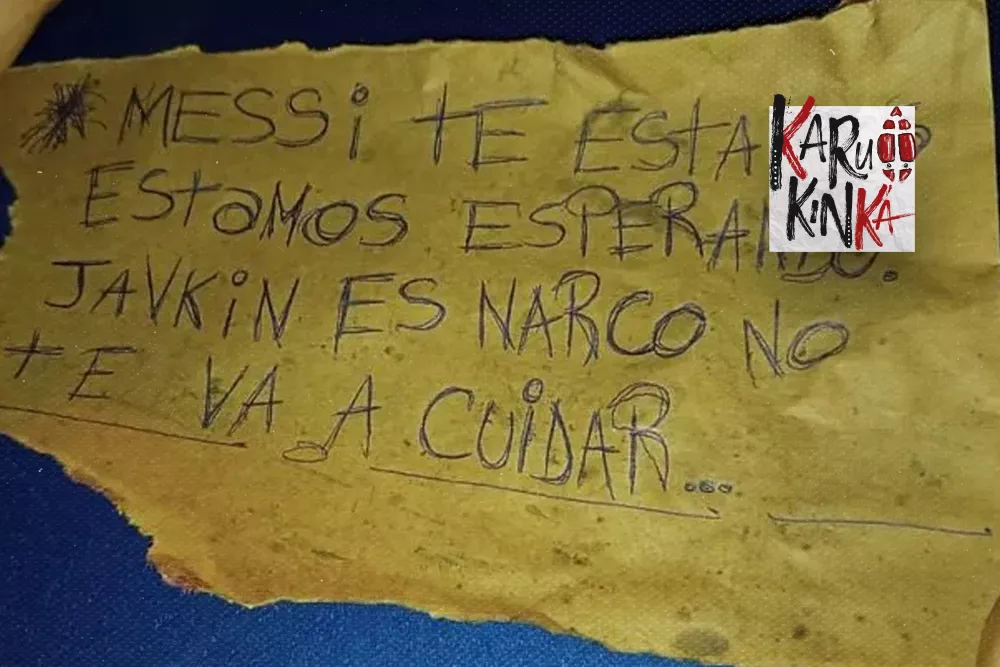 MESSi tE EStA
EStaMOS ESPERANDO.
JAVKiN ES NARCO NO
tE VA A CUiDAR...
KARU
KiNKÁ